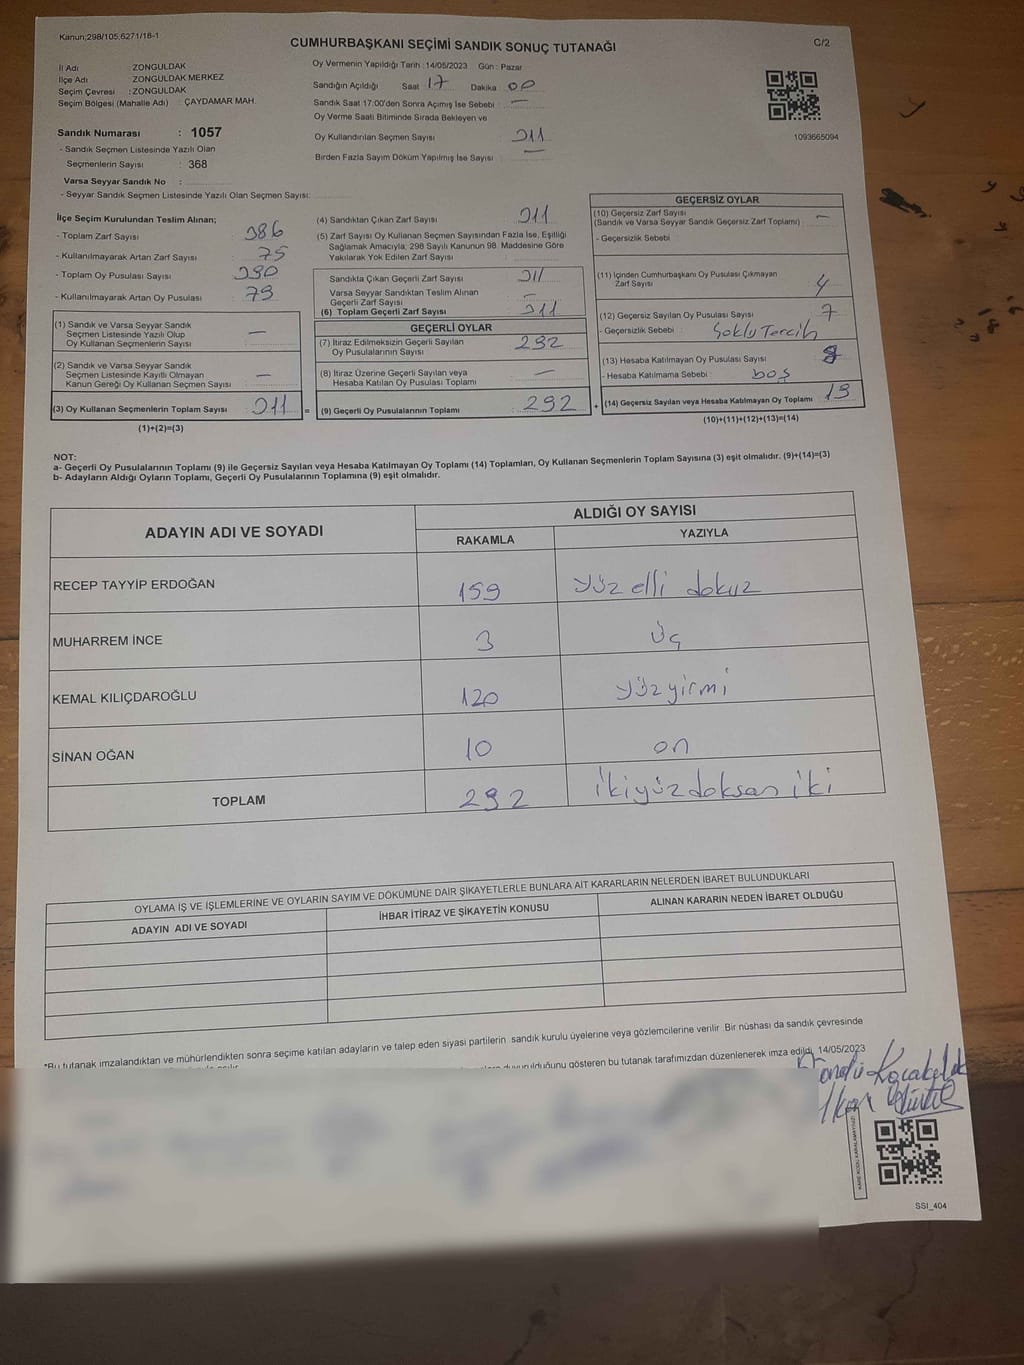 Kanun;298/105.6271/16-1
CUMHURBAŞKANI SEÇİMİ SANDIK SONUÇ TUTANAĞI
C/2
İl Adı : ZONGULDAK
İlçe Adı : ZONGULDAK MERKEZ
Seçim Çevresi : ZONGULDAK
Seçim Bölgesi (Mahalle Adı) : ÇAYDAMAR MAH.
Sandık Numarası : 1057
- Sandık Seçmen Listesinde Yazılı Olan
Seçmenlerin Sayısı : 368
Varsa Seyyar Sandık No :
- Seyyar Sandık Seçmen Listesinde Yazılı Olan Seçmen Sayısı:
Oy Vermenin Yapıldığı Tarih : 14/05/2023 Gün : Pazar
Sandığın Açıldığı Saat 17 Dakika : 00
Sandık Saat 17:00'den Sonra Açımış İse Sebebi : —
Oy Verme Saati Bitiminde Sırada Bekleyen ve
Oy Kullandırılan Seçmen Sayısı : 311
Birden Fazla Sayım Döküm Yapılmış İse Sayısı : —
1093665094
İlçe Seçim Kurulundan Teslim Alınan;
- Toplam Zarf Sayısı : 386
- Kullanılmayarak Artan Zarf Sayısı : 75
- Toplam Oy Pusulası Sayısı : 390
- Kullanılmayarak Artan Oy Pusulası : 79
(1) Sandık ve Varsa Seyyar Sandık
Seçmen Listesinde Yazılı Olup
Oy Kullanan Seçmenlerin Sayısı : —
(2) Sandık ve Varsa Seyyar Sandık
Seçmen Listesinde Kayıtlı Olmayan
Kanun Gereği Oy Kullanan Seçmen Sayısı : —
(3) Oy Kullanan Seçmenlerin Toplam Sayısı : 311 =
(1)+(2)=(3)
(4) Sandıktan Çıkan Zarf Sayısı : 311
(5) Zarf Sayısı Oy Kullanan Seçmen Sayısından Fazla İse, Eşitliği
Sağlamak Amacıyla; 298 Sayılı Kanunun 98. Maddesine Göre
Yakılarak Yok Edilen Zarf Sayısı :
Sandıkta Çıkan Geçerli Zarf Sayısı : 311
Varsa Seyyar Sandıktan Teslim Alınan
Geçerli Zarf Sayısı : —
(6) Toplam Geçerli Zarf Sayısı : 311
GEÇERLİ OYLAR
(7) İtiraz Edilmeksizin Geçerli Sayılan
Oy Pusulalarının Sayısı : 292
(8) İtiraz Üzerine Geçerli Sayılan veya
Hesaba Katılan Oy Pusulası Toplamı : —
(9) Geçerli Oy Pusulalarının Toplamı : 292 +
GEÇERSİZ OYLAR
(10) Geçersiz Zarf Sayısı
(Sandık ve Varsa Seyyar Sandık Geçersiz Zarf Toplamı) : —
- Geçersizlik Sebebi :
(11) İçinden Cumhurbaşkanı Oy Pusulası Çıkmayan
Zarf Sayısı : 4
(12) Geçersiz Sayılan Oy Pusulası Sayısı : 7
- Geçersizlik Sebebi : Çoklu Tercih
(13) Hesaba Katılmayan Oy Pusulası Sayısı : 8
- Hesaba Katılmama Sebebi : boş
(14) Geçersiz Sayılan veya Hesaba Katılmayan Oy Toplamı : 19
(10)+(11)+(12)+(13)=(14)
NOT:
a- Geçerli Oy Pusulalarının Toplamı (9) ile Geçersiz Sayılan veya Hesaba Katılmayan Oy Toplamı (14) Toplamları, Oy Kullanan Seçmenlerin Toplam Sayısına (3) eşit olmalıdır. (9)+(14)=(3)
b- Adayların Aldığı Oyların Toplamı, Geçerli Oy Pusulalarının Toplamına (9) eşit olmalıdır.
ADAYIN ADI VE SOYADI
ALDIĞI OY SAYISI
RAKAMLA YAZIYLA
RECEP TAYYİP ERDOĞAN 159 yüz elli dokuz
MUHARREM İNCE 3 üç
KEMAL KILIÇDAROĞLU 120 yüzyirmi
SİNAN OĞAN 10 on
TOPLAM 292 ikiyüzdoksan iki
OYLAMA İŞ VE İŞLEMLERİNE VE OYLARIN SAYIM VE DÖKÜMÜNE DAİR ŞİKAYETLERLE BUNLARA AİT KARARLARIN NELERDEN İBARET BULUNDUKLARI
ADAYIN ADI VE SOYADI İHBAR İTİRAZ VE ŞİKAYETİN KONUSU ALINAN KARARIN NEDEN İBARET OLDUĞU
*Bu tutanak imzalandıktan ve mühürlendikten sonra seçime katılan adayların ve talep eden siyasi partilerin sandık kurulu üyelerine veya gözlemcilerine verilir. Bir nüshası da sandık çevresinde
duyurulduğunu gösteren bu tutanak tarafımızdan düzenlenerek imza edildi. 14/05/2023
SSI_404